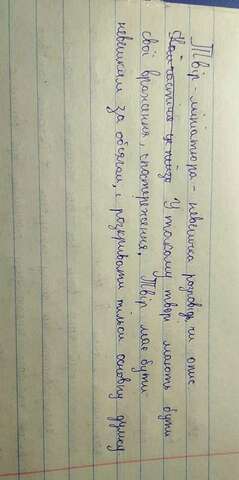 Твір-мініатюра - невеличка розповідь чи опис.
У такому творі мають бути
свої враження, спостереження. Твір має бути
невеликим за обсягом, і розкривати тільки основну думку